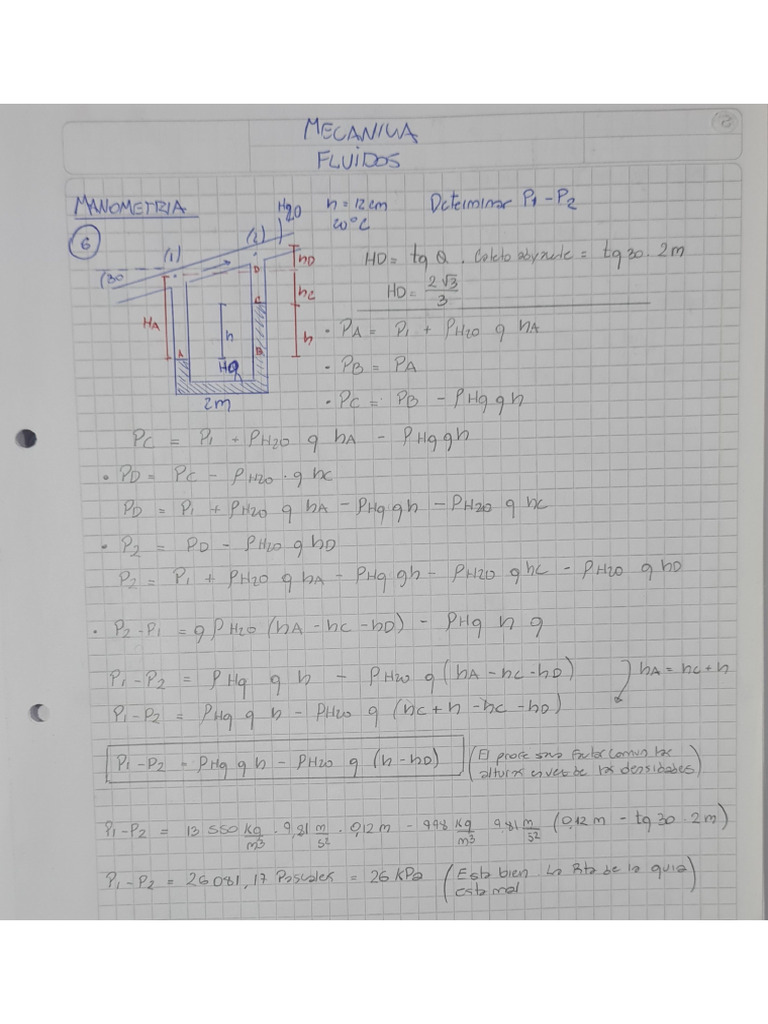 MECANICA
FLUIDOS
MANOMETRIA
H2O
h = 12 cm
20°C
Determinar P1 - P2
6
(1)
(2)
30
HD = tg θ . Cateto adyacente = tg 30 . 2m
HD = 2√3 / 3
HA
A
h
HQ
B
C
D
hD
hc
h
2m
• PA = P1 + ρH2O g hA
• PB = PA
• Pc = PB - ρHg g h
Pc = P1 + ρH2O g hA - ρHg g h
• PD = Pc - ρH2O . g hc
PD = P1 + ρH2O g hA - ρHg g h - ρH2O g hc
• P2 = PD - ρH2O g hD
P2 = P1 + ρH2O g hA - ρHg g h - ρH2O g hc - ρH2O g hD
• P2 - P1 = g ρH2O (hA - hc - hD) - ρHg h g
P1 - P2 = ρHg g h - ρH2O g (hA - hc - hD)
hA = hc + h
P1 - P2 = ρHg g h - ρH2O g (hc + h - hc - hD)
P1 - P2 = ρHg g h - ρH2O g (h - hD)
(El profe saco Factor Comun las
alturas en vez de las densidades)
P1 - P2 = 13 550 kg/m3 . 9,81 m/s2 . 0,12m - 998 kg/m3 9,81 m/s2 (0,12m - tg 30 . 2m)
P1 - P2 = 26 081,17 Pascales = 26 KPa
(Esta bien La Rta de la guia
esta mal)